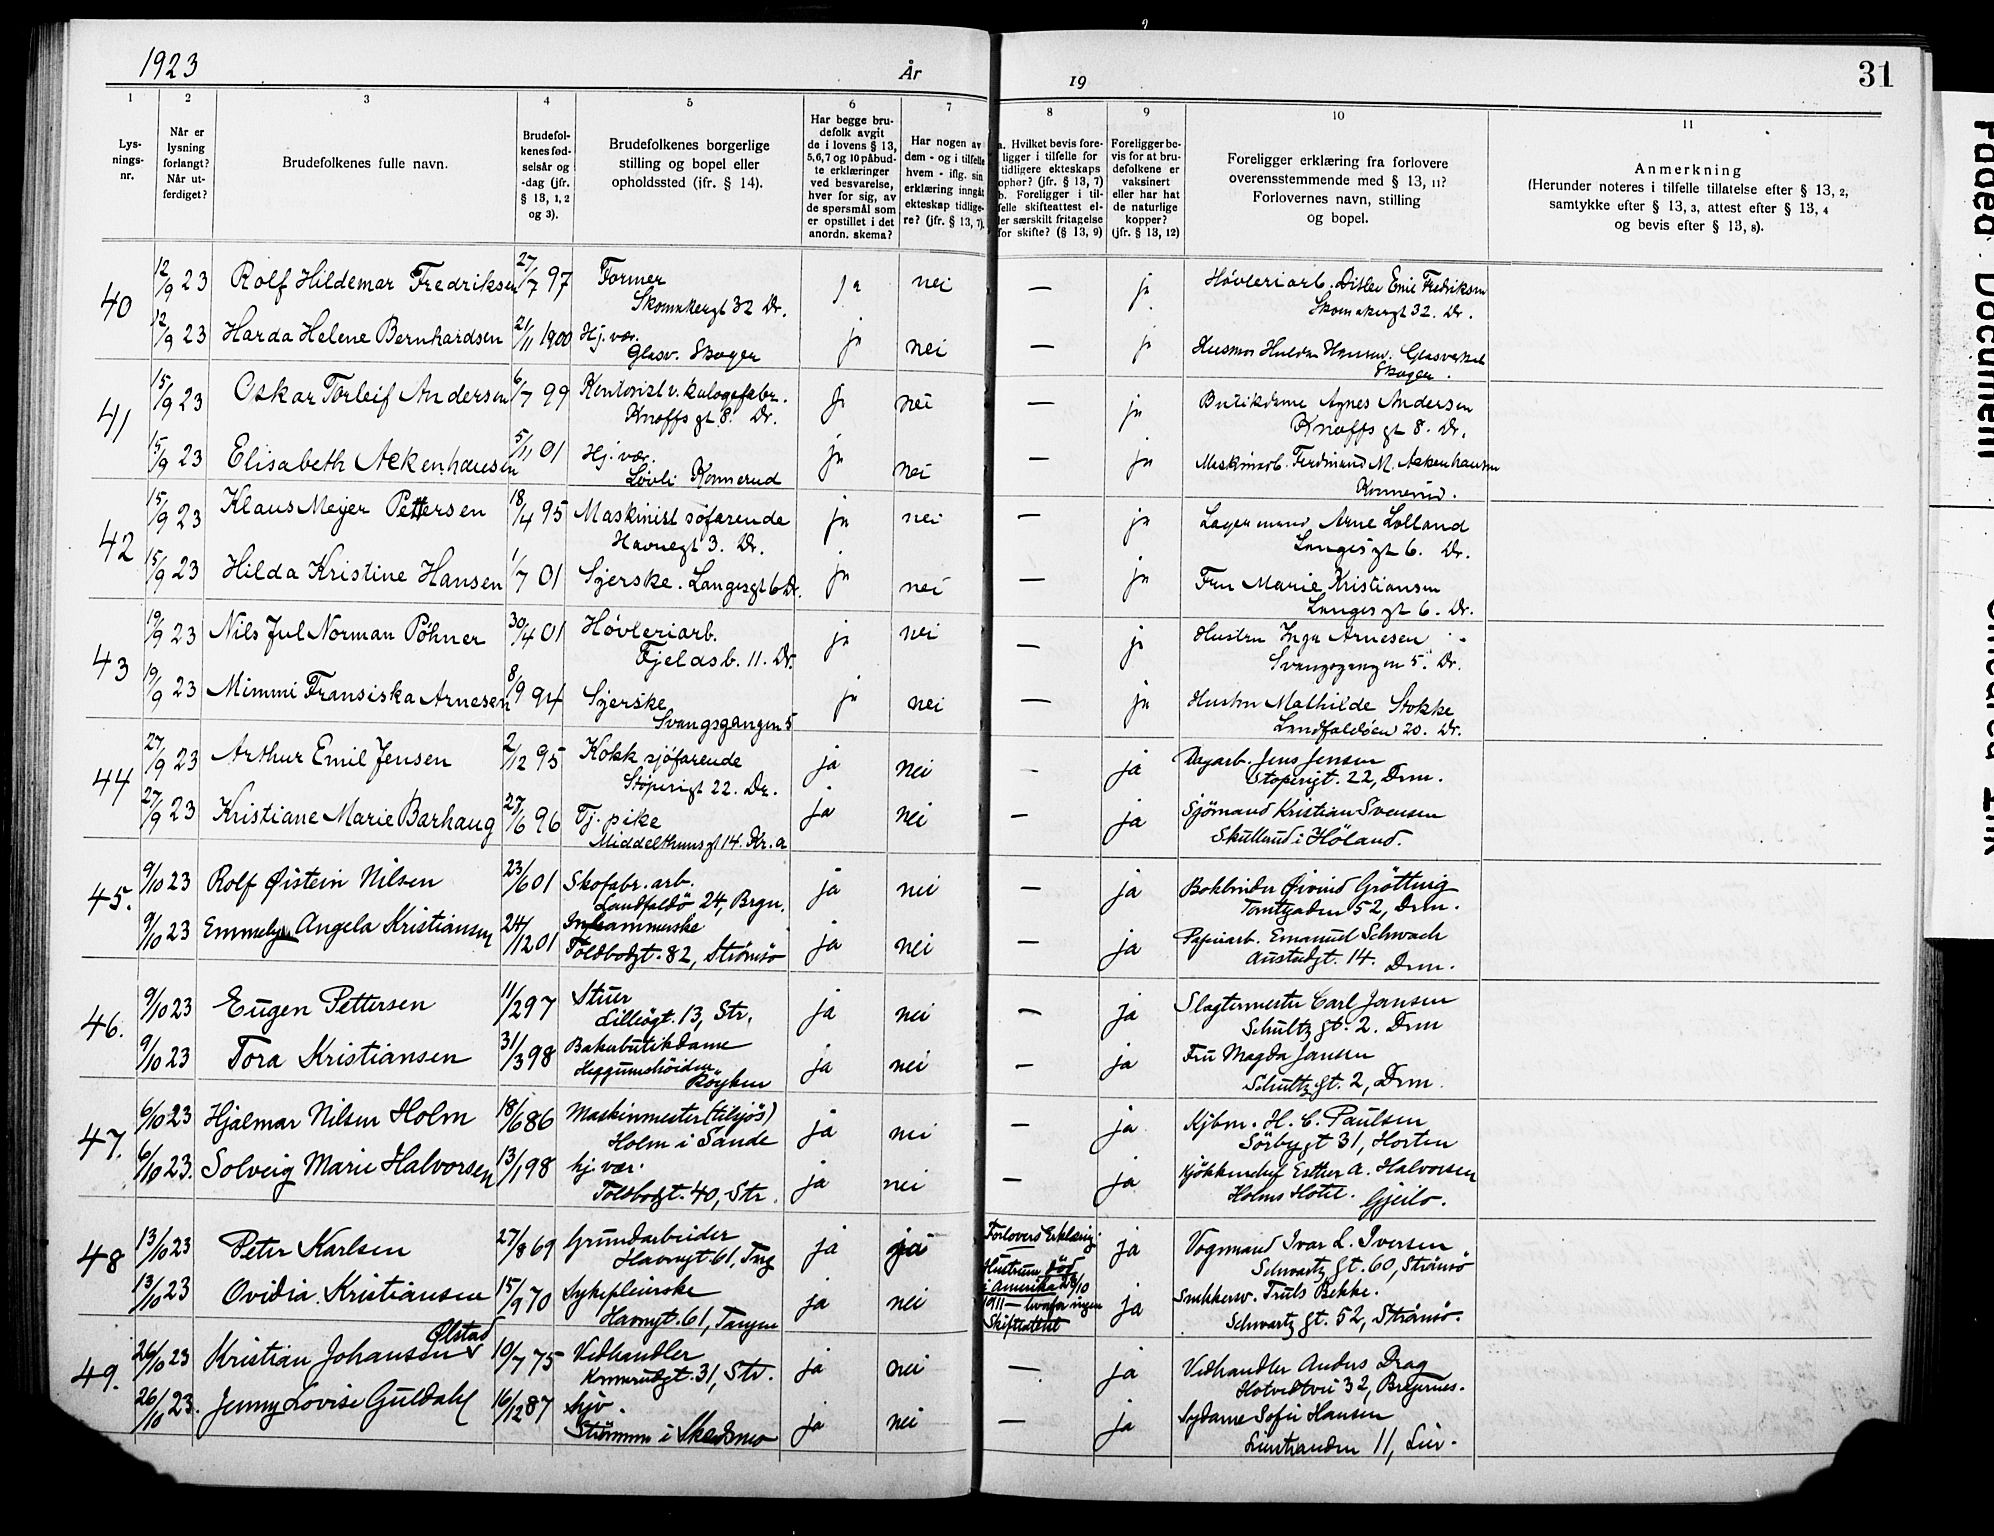 1923
År
19
31
1 2 3 4 5 6 7 8 9 10 11
Lys-
nings-
nr.
Når er
lysning
forlangt?
Når ut-
ferdiget?
Brudefolkenes fulle navn.
Brudefol-
kenes fød-
selsår og
-dag (jfr.
§ 13, 1, 2
og 3).
Brudefolkenes borgerlige
stilling og bopel eller
opholdssted (jfr. § 14).
Har begge bru-
defolk avgit
de i lovens § 13,
5,6,7 og 10 påbud-
te erklæringer
ved besvarelse,
hver for sig, av
de spørsmål som
er opstillet i det
anordn. skema?
Har nogen av
dem - og i tilfelle
hvem - iflg. sin
erklæring inngåt
ekteskap tidlige-
re? (jfr. § 13, 7).
a. Hvilket bevis fore-
ligger i tilfelle for
tidligere ekteskaps
ophør? (jfr. § 13, 7)
b. Foreligger i til-
felle skifteattest el-
ler særskilt fritagelse
for skifte? (§ 13, 9)
Foreligger be-
vis for at bru-
defolkene er
vaksinert
eller har hat
de naturlige
kopper?
(jfr. § 13, 12)
Foreligger erklæring fra forlovere
overensstemmende med § 13, 11?
Forlovernes navn, stilling
og bopel.
Anmerkning
(Herunder noteres i tilfelle tillatelse efter § 13, 2,
samtykke efter § 13, 3, attest efter § 13, 4
og bevis efter § 13, 8).
40 12/9 23 Rolf Hildemar Fredriksen 27/7 97 Former ja nei — ja Høvleriarb. Ditlev Emil Fredriksen
Skomakergt 32 Dr. Skomakergt 32. Dr.
12/9 23 Harda Helene Bernhardsen 21/11 1900 Hj. vær. ja nei — ja Husmor Hulda Hansen. Glasverket
Glasv. Skoger Skoger.
41 15/9 23 Oskar Torleif Andersen 6/7 99 Kontorist v. kalogefabr. ja nei — ja Butikdame Agnes Andersen
Knoffs gt 8. Dr. Knoffs gt 8. Dr.
15/9 23 Elisabeth Ackenhausen 5/11 01 Hj. vær. ja nei — ja Maskinarb. Ferdinand M. Ackenhausen
Løvli Konnerud Konnerud.
42 15/9 23 Klaus Meyer Pettersen 18/4 95 Maskinist søfarende ja nei — ja Lagermand Arne Lolland
Havnegt 3. Dr. Langesgt 6. Dr.
15/9 23 Hilda Kristine Hansen 1/7 01 Syerske. Langesgt 6 Dr. ja nei — ja Fru Marie Kristiansen
Langesgt 6. Dr.
43 19/9 23 Nils Jul Norman Pöhner 30/4 01 Høvleriarb. ja nei — ja Hustru Inga Arnesen
Fjeldsb. 11. Dr. Svangsgangen 5. Dr.
19/9 23 Mimmi Fransiska Arnesen 8/9 94 Syerske ja nei — ja Hustru Mathilde Stokke
Svangsgangen 5 Landfaldöen 20. Dr.
44 27/9 23 Arthur Emil Jensen 2/12 95 Kokk sjöfarende ja nei — ja Dagarb. Jens Jensen
Støperigt 22. Dr. Stoperigt. 22, Drm.
27/9 23 Kristiane Marie Barhaug 27/6 96 Tj. pike ja nei — ja Sjömand Kristian Svensen
Middelthunsgt 14. Kr.a Skulland i Höland.
45. 9/10 23 Rolf Øistein Nilsen 23/6 01 Skofabr. arb. ja nei — ja Bokbinder Øivind Grötting
Landfaldö 24, Brgn. Tomtegaden 52, Drm.
9/10 23 Emmely Angela Kristiansen 24/12 01 ja nei — ja Papirarb. Emanuel Schwach
Toldbodgt. 82, Strömsö Austadgt. 14. Drm.
46. 9/10 23 Eugen Pettersen 11/2 97 Stuer ja nei — ja Slagtermester Carl Jansen
Lilleögt. 13, Str. Schultzgt. 2. Drm
9/10 23 Tora Kristiansen 31/3 98 Bakebutikdame ja nei — ja Fru Magda Jansen
Heggumshöiden Röyken Schultzgt. 2, Drm.
47. 6/10 23 Hjalmar Nilsen Holm 18/6 86 Maskinmester (tilsjös) ja nei — ja Kjbm. H. C. Paulsen
Holm i Sande Sörbygt 31, Horten
6/10 23. Solveig Marie Halvorsen 13/1 98 hj. vær. ja nei — ja Kjökkenchef Esther A. Halvorsen
Toldbodgt. 40, Str. Holms Hotel. Gjeilo.
48 13/10 23 Peter Karlsen 27/8 69 Grundarbeider ja ja Forlovers Erklæring. ja Vognmand Ivar L. Iversen
Havnegt 61, Tng Hustruen död Schwartzgt. 60, Strömsö
13/10 23 Ovidia Kristiansen 15/9 70 Sykepleierske ja nei i Amerika 28/10 ja Snekkersv. Truls Bekke.
Havnegt. 61, Tangen 1911 — hvorfor ingen Schwartzgt. 52, Strömsö.
Skifteattest
49. 26/10 23 Kristian Johansen Ølstad 10/7 75 Vedhandler ja nei — ja Vedhandler Anders Drag
Konnerudgt. 31, Str. Hotvedtvei 32, Bragernes.
26/10 23. Jenny Lovise Guldahl 16/12 87 hjv. ja nei — ja Sydame Sofie Hansen
Strömmen i Skedsmo Lierstranden 11, Lier.
Faded Document